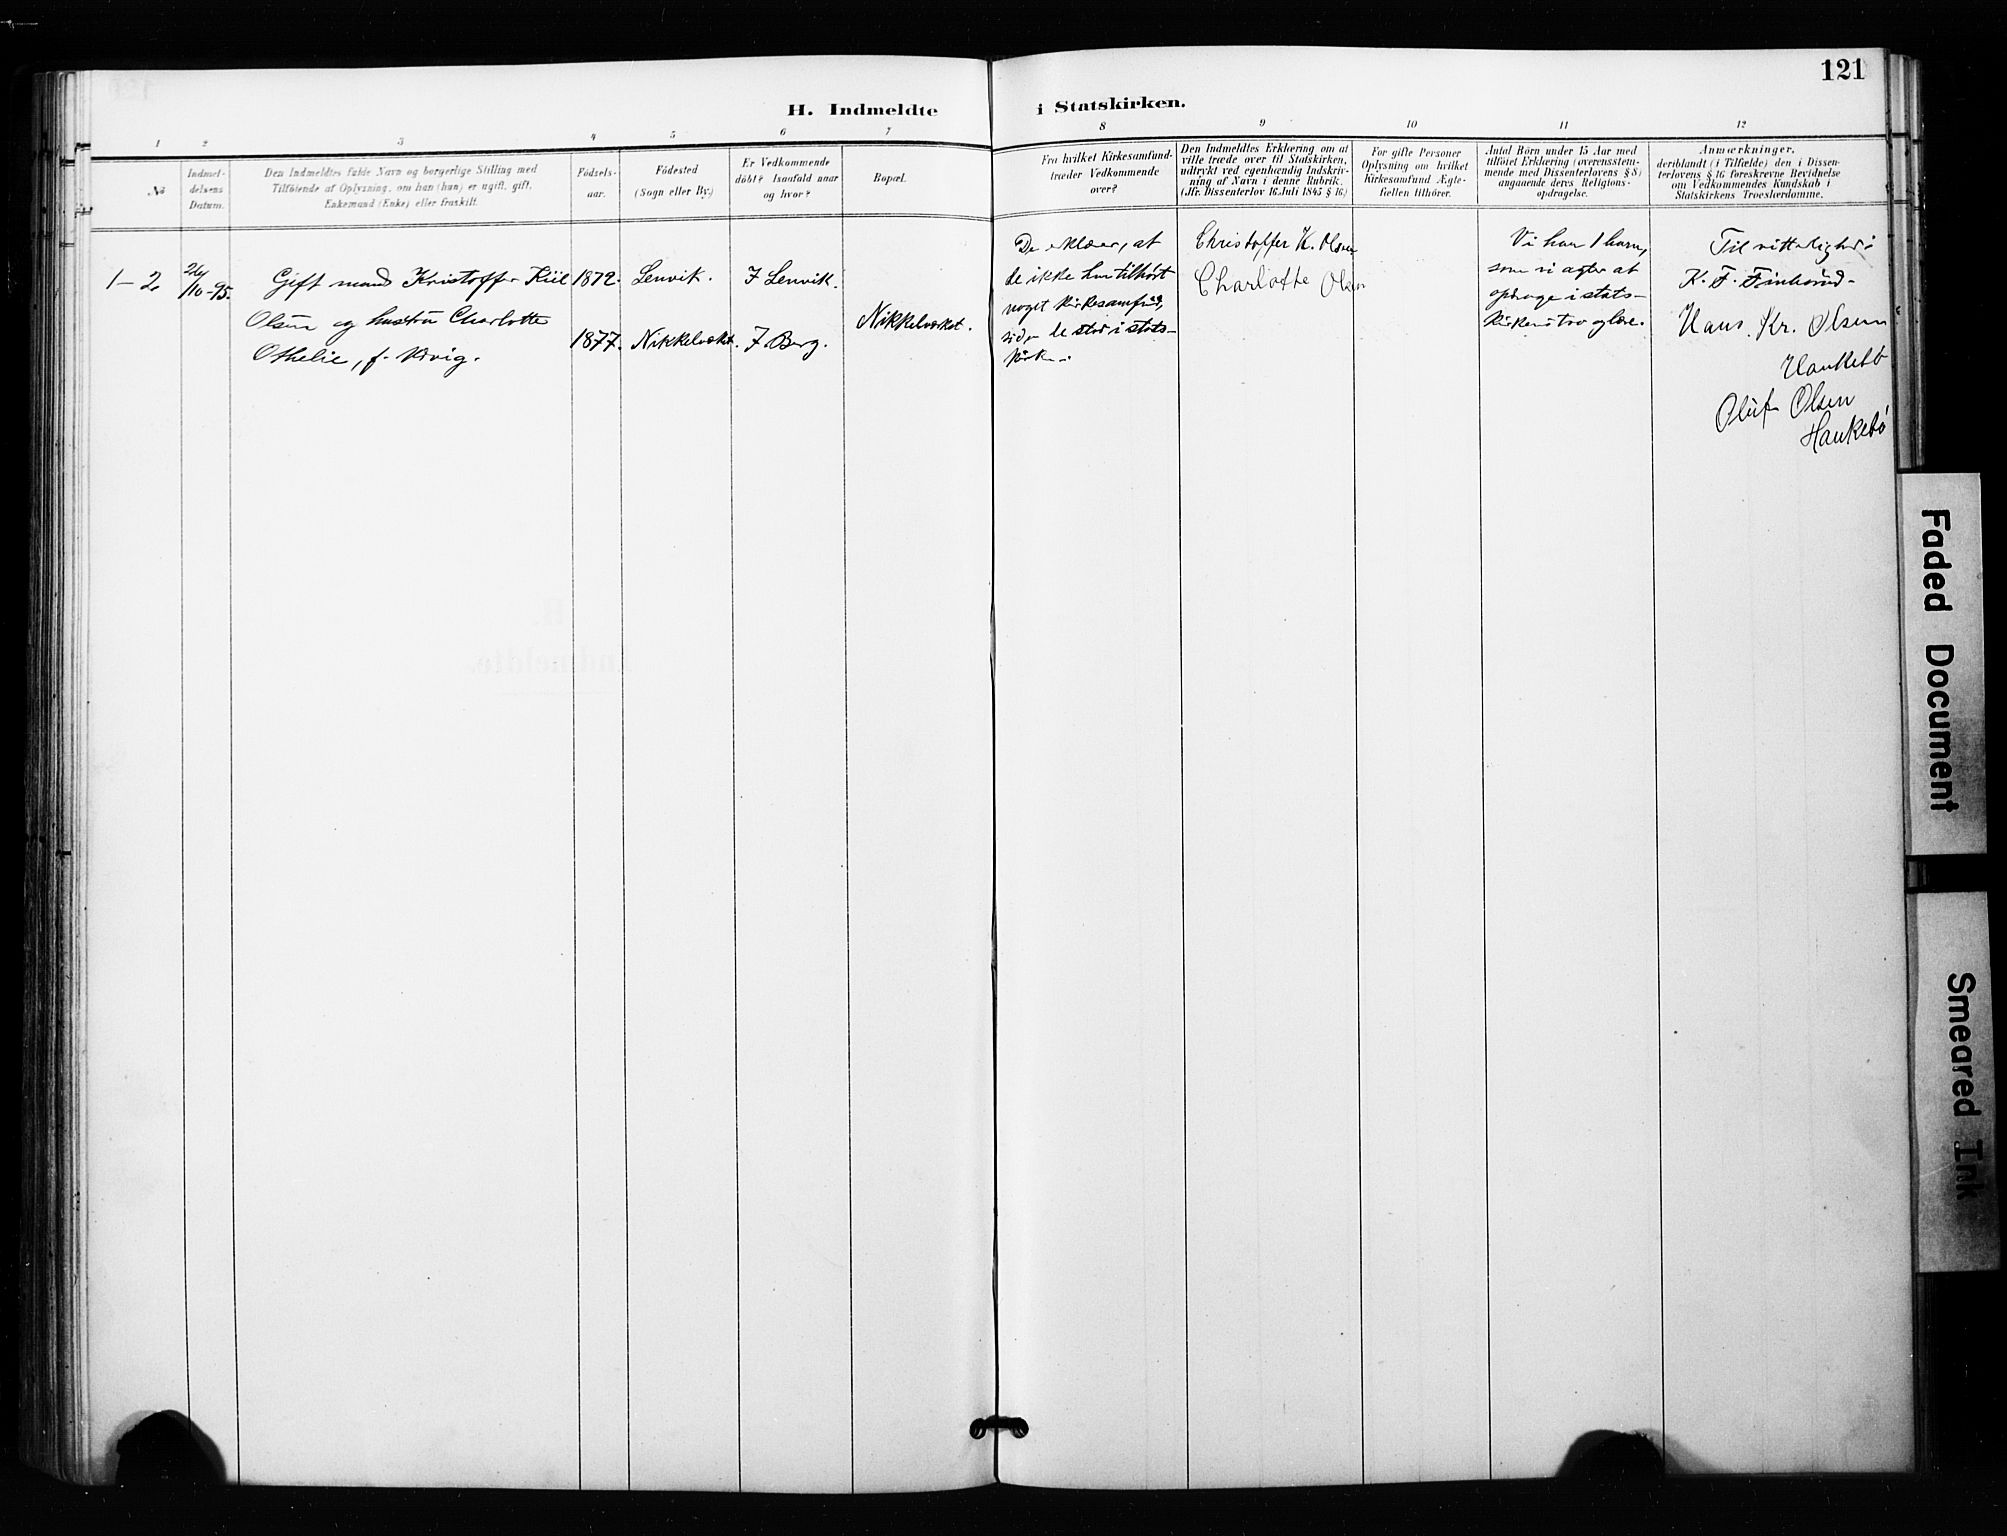 121
H. Indmeldte i Statskirken.
1 2 3 4 5 6 7 8 9 10 11 12
No
Indmel-
delsens
Datum.
Den Indmeldtes fulde Navn og borgerlige Stilling med
Tilföiende af Oplysning, om han (hun) er ugift, gift,
Enkemand (Enke) eller fraskilt.
Födsels-
aar.
Födested
(Sogn eller By.)
Er Vedkommende
döbt? Isaafald naar
og hvor?
Bopæl.
Fra hvilket Kirkesamfund-
træder Vedkommende
over?
Den Indmeldtes Erklæring om at
ville træde over til Statskirken,
udtrykt ved egenhændig Indskriv-
ning af Navn i denne Rubrik.
(Jfr. Dissenterlov 16. Juli 1845 § 16.)
For gifte Personer
Oplysning om hvilket
Kirkesamfund Ægte-
fællen tilhörer.
Antal Börn under 15 Aar med
tilföiet Erklæring (overensstem-
mende med Dissenterlovens § 8)
angaaende deres Religions-
opdragelse.
Anmærkninger,
deriblandt (i Tilfælde) den i Dissen-
terlovens § 16 foreskrevne Bevidnelse
om Vedkommendes Kundskab i
Statskirkens Troeslærdomme.
1-2
/10-95.
Gift mand Kristoffer Kiil
Olsen og hustru Charlotte
Othelie, f.
1872.
1877.
Lenvik.
Nikkelværket.
I Lenvik.
I Berg.
Nikkelværket.
De erklærer, at
de ikke har tilhørt
noget kirkesamfund,
siden de stod i stats-
kirken.
Christoffer K. Olsen
Charlotte Olsen
Vi har 1 barn,
som vi agter at
opdrage i stats-
kirkens tro og lære.
Til vitterlighed:
K. F.
Hans Kr. Olsen
Haukebö
Oluf Olsen
Haukebö
Faded Document
Smeared Ink